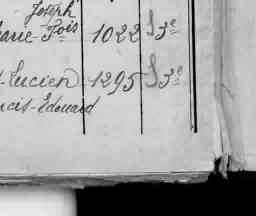 Joseph
Marie-Fois 1022 S 3e
-Lucien 1295 S 3e
ncis-Edouard